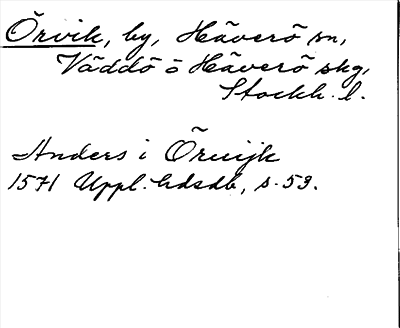 Örvik, by, Häverö sn,
Väddö o Häverö skg,
Stockh. l.
Anders i Öruijk
1571 Uppl. hdsdb, s. 53.